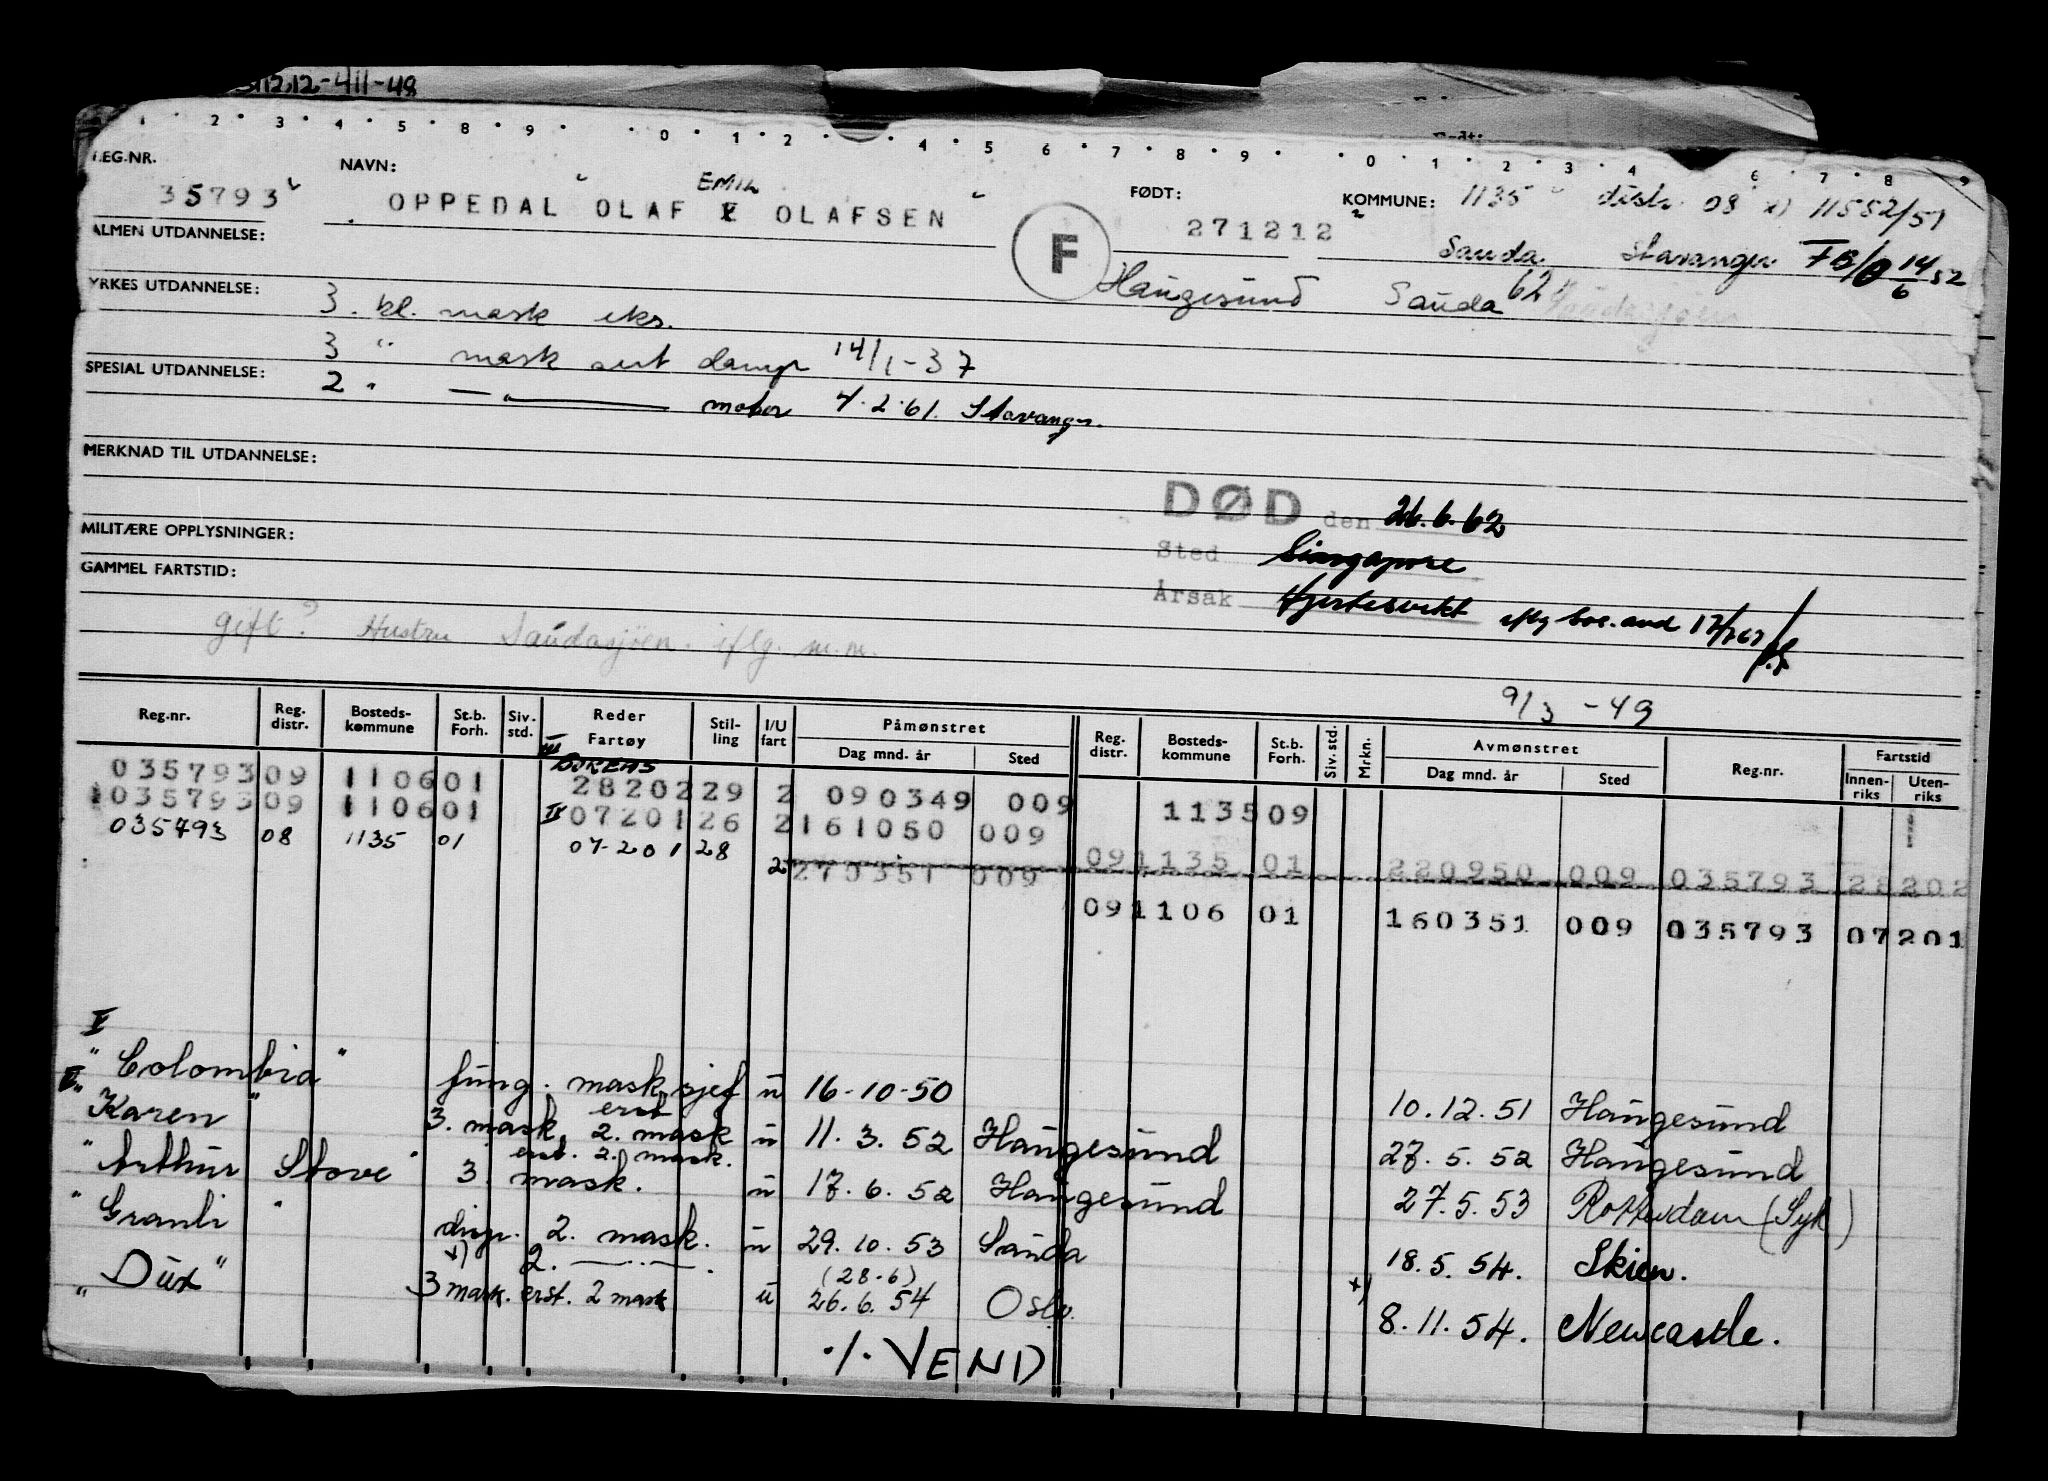 1212-411-48
1 2 3 4 5 8 9 0 1 2 4 5 6 7 8 9 0 1 2 3 4 6 7 8 9
REG.NR.
NAVN:
FØDT:
KOMMUNE: 1135 distr. 08 x) 11552/51
EMIL
35793
OPPEDAL OLAF E OLAFSEN
F
271212
Sauda Stavanger FB/ 14/6 52
ALMEN UTDANNELSE:
Haugesund Sauda 62
YRKES UTDANNELSE:
3. kl. mask eks.
3 " mask sert damp 14/1-37
SPESIAL UTDANNELSE:
2 " — " — motor 4.2.61. Stavanger.
MERKNAD TIL UTDANNELSE:
DØD den 26.6.62
MILITÆRE OPPLYSNINGER:
Sted Singapore
GAMMEL FARTSTID:
Årsak Hjertesvikt iflg
gift? Hustru Saudasjøen. iflg. m.m.
9/3 -49
Reg.nr. Reg. distr. Bosteds-kommune St.b. Forh. Siv. std. Reder Fartøy Stil-ling I/U fart Påmønstret Dag mnd. år Sted Reg. distr. Bosteds-kommune St.b. Forh. Siv. std. Mrkn. Avmønstret Dag mnd. år Sted Reg.nr. Fartstid Innen-riks Uten-riks
035793 09 1106 01 28202 29 2 090349 009 1135 09
035793 09 1106 01 II 07201 26 2 161050 009
035793 08 1135 01 07201 28
2 270351 009 09 1135 01 220950 009 035793 28 202
09 1106 01 160351 009 035793 07 201
V
"Colombia" fung. mask.sjef u 16-10-50 10.12.51 Haugesund
"Karen" 3. mask. erst. 2. mask u 11.3.52 Haugesund 27.5.52 Haugesund
"Arthur Stove" 3. mask. erst. 2. mask. u 17.6.52 Haugesund 27.5.53 Rotterdam (Syk)
"Granli" disp. 2. mask. u 29.10.53 Sauda 18.5.54. Skien.
x) 2. — " — . (28.6) x)
"Dux" 3 mask. erst. 2 mask u 26.6.54 Oslo. 8.11.54. Newcastle.
./. VEND